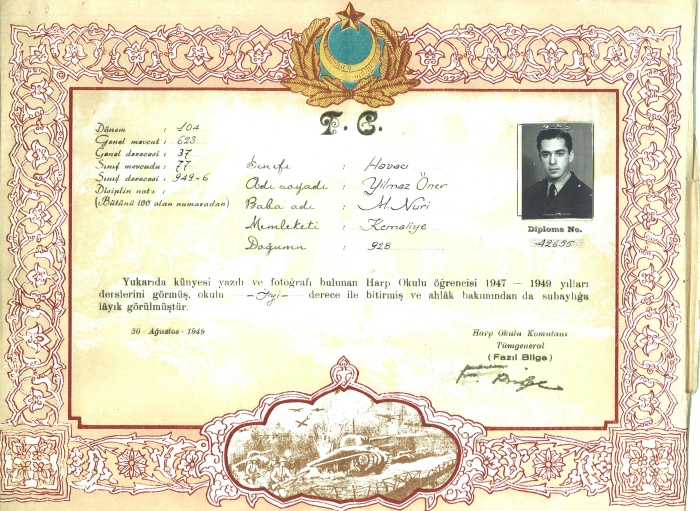 T. C.
Dönem : 104
Genel mevcut : 623
Genel derecesi : 37
Sınıf mevcudu : 77
Sınıf derecesi : 949-6
Disiplin notu :
(Bütünü 100 olan numaradan)
Sınıfı : Havacı
Adı soyadı : Yılmaz Öner
Baba adı : M. Nuri
Memleketi : Kemaliye
Doğumu : 928
Diploma No.
Yukarıda künyesi yazılı ve fotoğrafı bulunan Harp Okulu öğrencisi 1947 — 1949 yılları
derslerini görmüş, okulu —İyi— derece ile bitirmiş ve ahlâk bakımından da subaylığa
lâyık görülmüştür.
30 - Ağustos - 1949
Harp Okulu Komutanı
Tümgeneral
(Fazıl Bilge)